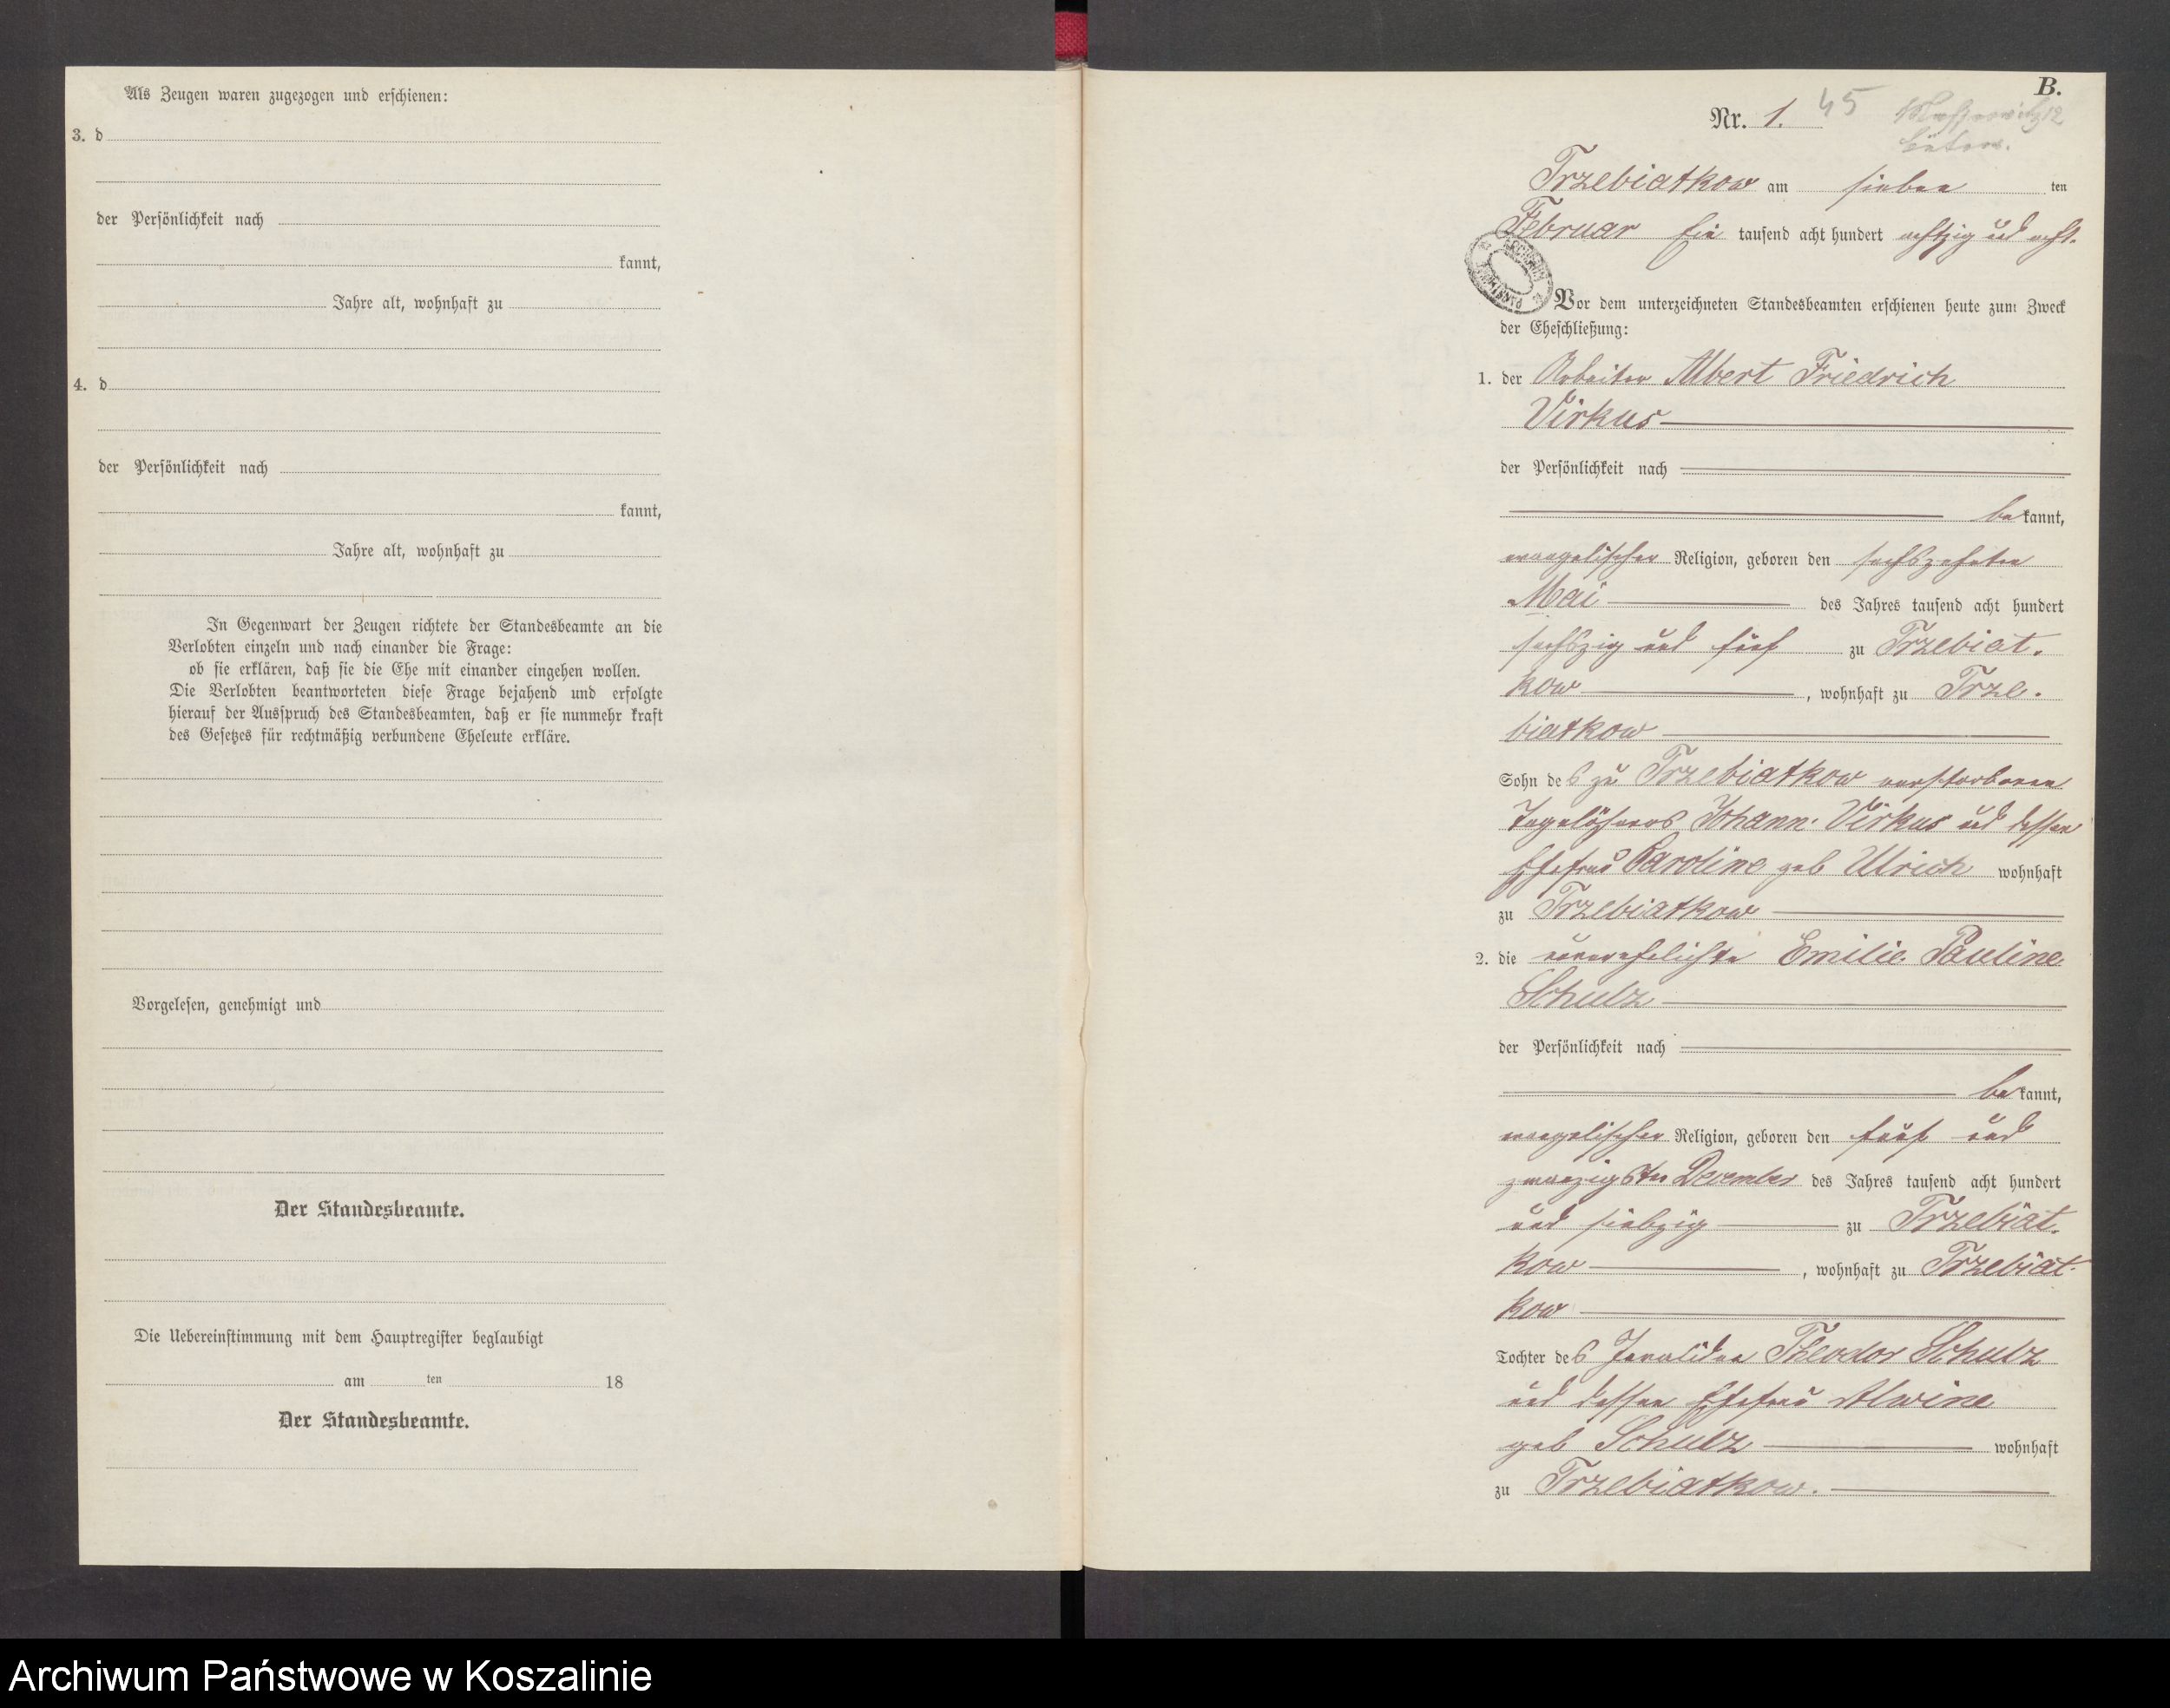 Als Zeugen waren zugezogen und erschienen:
3. d
der Persönlichkeit nach
kannt,
Jahre alt, wohnhaft zu
4. d
der Persönlichkeit nach
kannt,
Jahre alt, wohnhaft zu
In Gegenwart der Zeugen richtete der Standesbeamte an die
Verlobten einzeln und nach einander die Frage:
ob sie erklären, daß sie die Ehe mit einander eingehen wollen.
Die Verlobten beantworteten diese Frage bejahend und erfolgte
hierauf der Ausspruch des Standesbeamten, daß er sie nunmehr kraft
des Gesetzes für rechtmäßig verbundene Eheleute erkläre.
Vorgelesen, genehmigt und
Der Standesbeamte.
Die Uebereinstimmung mit dem Hauptregister beglaubigt
am ten 18
Der Standesbeamte.
B.
Nr. 1. 45
Trzebiatkow am sieben ten
Februar Ein tausend acht hundert achtzig und acht.
Vor dem unterzeichneten Standesbeamten erschienen heute zum Zweck
der Eheschließung:
1. der Arbeiter Albert Friedrich
Virkus
der Persönlichkeit nach
be kannt,
evangelischer Religion, geboren den sechszehnten
Mai des Jahres tausend acht hundert
sechszig und fünf zu Trzebiat-
kow, wohnhaft zu Trze-
biatkow
Sohn des zu Trzebiatkow verstorbenen
Tagelöhners Johann Virkus und dessen
Ehefrau Karoline geb Ulrich wohnhaft
zu Trzebiatkow
2. die unverehelichte Emilie Pauline
Schulz
der Persönlichkeit nach
be kannt,
evangelischer Religion, geboren den fünf und
zwanzigsten December des Jahres tausend acht hundert
und siebzig zu Trzebiat-
kow, wohnhaft zu Trzebiat-
kow
Tochter des Invaliden Theodor Schulz
und dessen Ehefrau Alwine
geb Schulz wohnhaft
zu Trzebiatkow.
Archiwum Państwowe w Koszalinie